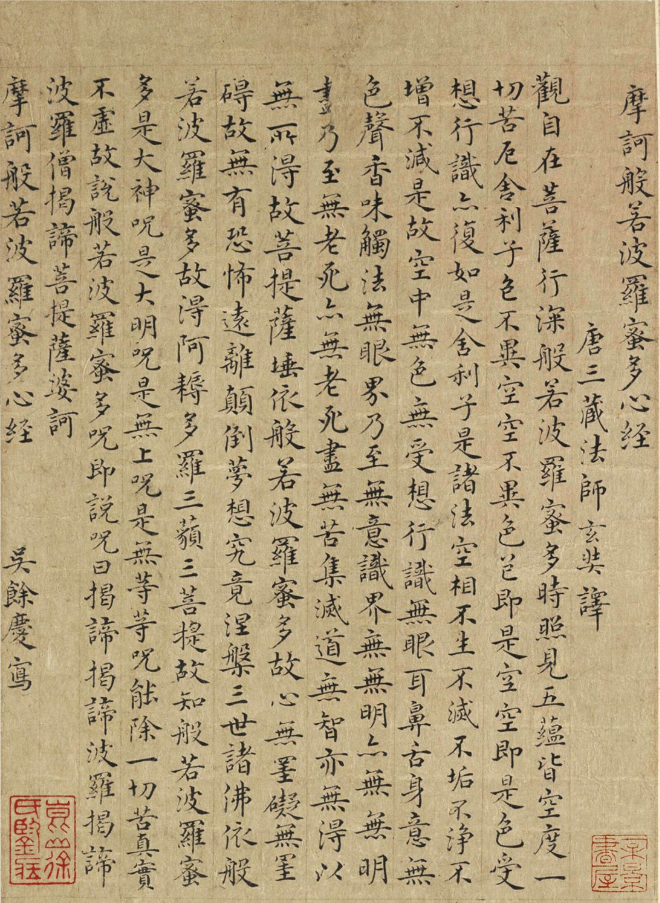 摩訶般若波羅蜜多心経
唐三藏法師玄奘譯
觀自在菩薩行深般若波羅蜜多時照見五蘊皆空度一
切苦厄舍利子色不異空空不異色色即是空空即是色受
想行識亦復如是舍利子是諸法空相不生不滅不垢不淨不
增不減是故空中無色無受想行識無眼耳鼻舌身意無
色聲香味觸法無眼界乃至無意識界無無明亦無無明
盡乃至無老死亦無老死盡無苦集滅道無智亦無得以
無所得故菩提薩埵依般若波羅蜜多故心無罣礙無罣
碍故無有恐怖遠離顛倒夢想究竟涅槃三世諸佛依般
若波羅蜜多故得阿耨多羅三藐三菩提故知般若波羅蜜
多是大神咒是大明咒是無上咒是無等等咒能除一切苦真實
不虛故說般若波羅蜜多咒即說咒曰揭諦揭諦波羅揭諦
波羅僧揭諦菩提薩婆訶
摩訶般若波羅蜜多心経
吳餘慶寫